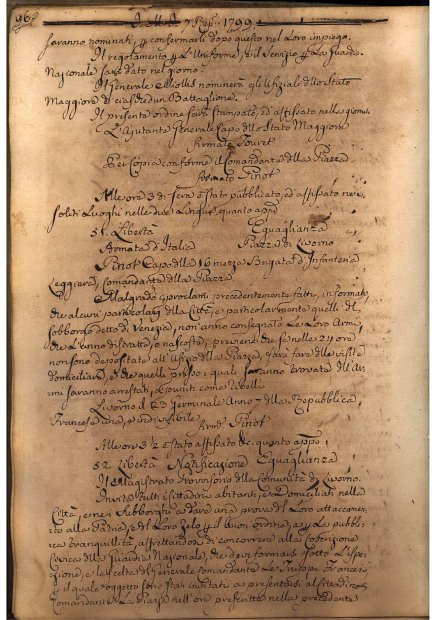 96.
1799
saranno nominati, p confermarli dopo questo nel Loro impiego.
Il regolamento p L'Uniforme, e il Servizio p La Guardia
Nazionale sarà dato nel giorno.
Il Generale Miollis nominerà gli Ufiziali dllo Stato
Maggiore di ciaschedun Battaglione.
Il presente ordine sarà Stampato, ed affissato nella giornata
L'Ajutante Generale Capo dllo Stato Maggiore
Armato Touret
Per Copia conforme il Comandante dlla Piazza
Armato Pinot
Alle ore 3 di sera è stato pubblicato, ed affissato nei
soliti Luoghi nelle due Lingue quanto app.
51. Libertà Eguaglianza
Armata d'Italia Piazza di Livorno
Pinot Capo dlla 16 mezza Brigata d'Infanteria
Leggiera, Comandante dlla Piazza
Malgrado i proclami precedentemente fatti, informato
che alcuni particolari della Città, e particolarmente quelli del
Sobborgo detto di Venezia, non anno consegnato Le Loro Armi,
che L'anno distratte, o nascoste, previene che se nelle 24 ore
non sono depositate all'Ufizio dlla Piazza, farà fare dlle visite
domiciliarie, e che quelli presso i quali saranno trovate dll'Ar-
mi saranno arrestati, e puniti come ribelli.
Livorno il 23 Germinale Anno 7 dlla Repubblica
Francese una, e indivisibile
Arm. Pinot
Alle ore 3 1/2 è stato affissato quanto app.
52. Libertà Notificazione Eguaglianza
Il Magistrato Provvisorio dlla Comunità di Livorno.
Invita tutti i Cittadini abitanti, e Domiciliati nella
Città, e nei Subborghi a dare una prova del Loro attaccamen-
to alla Patria, e del Loro Zelo p il buon ordine, e p La pubbli-
ca tranquillità, affrettandosi di concorrere alla Coscrizione
Civica dlla Guardia Nazionale, che deve formarsi sotto L'ispe-
zione, e la scelta del Generale Comandante Le Truppe Francesi
p il quale oggetto sono stati invitati a presentarsi al Cittadino
Comandante La Piazza nell'ore prescritte nella precedente